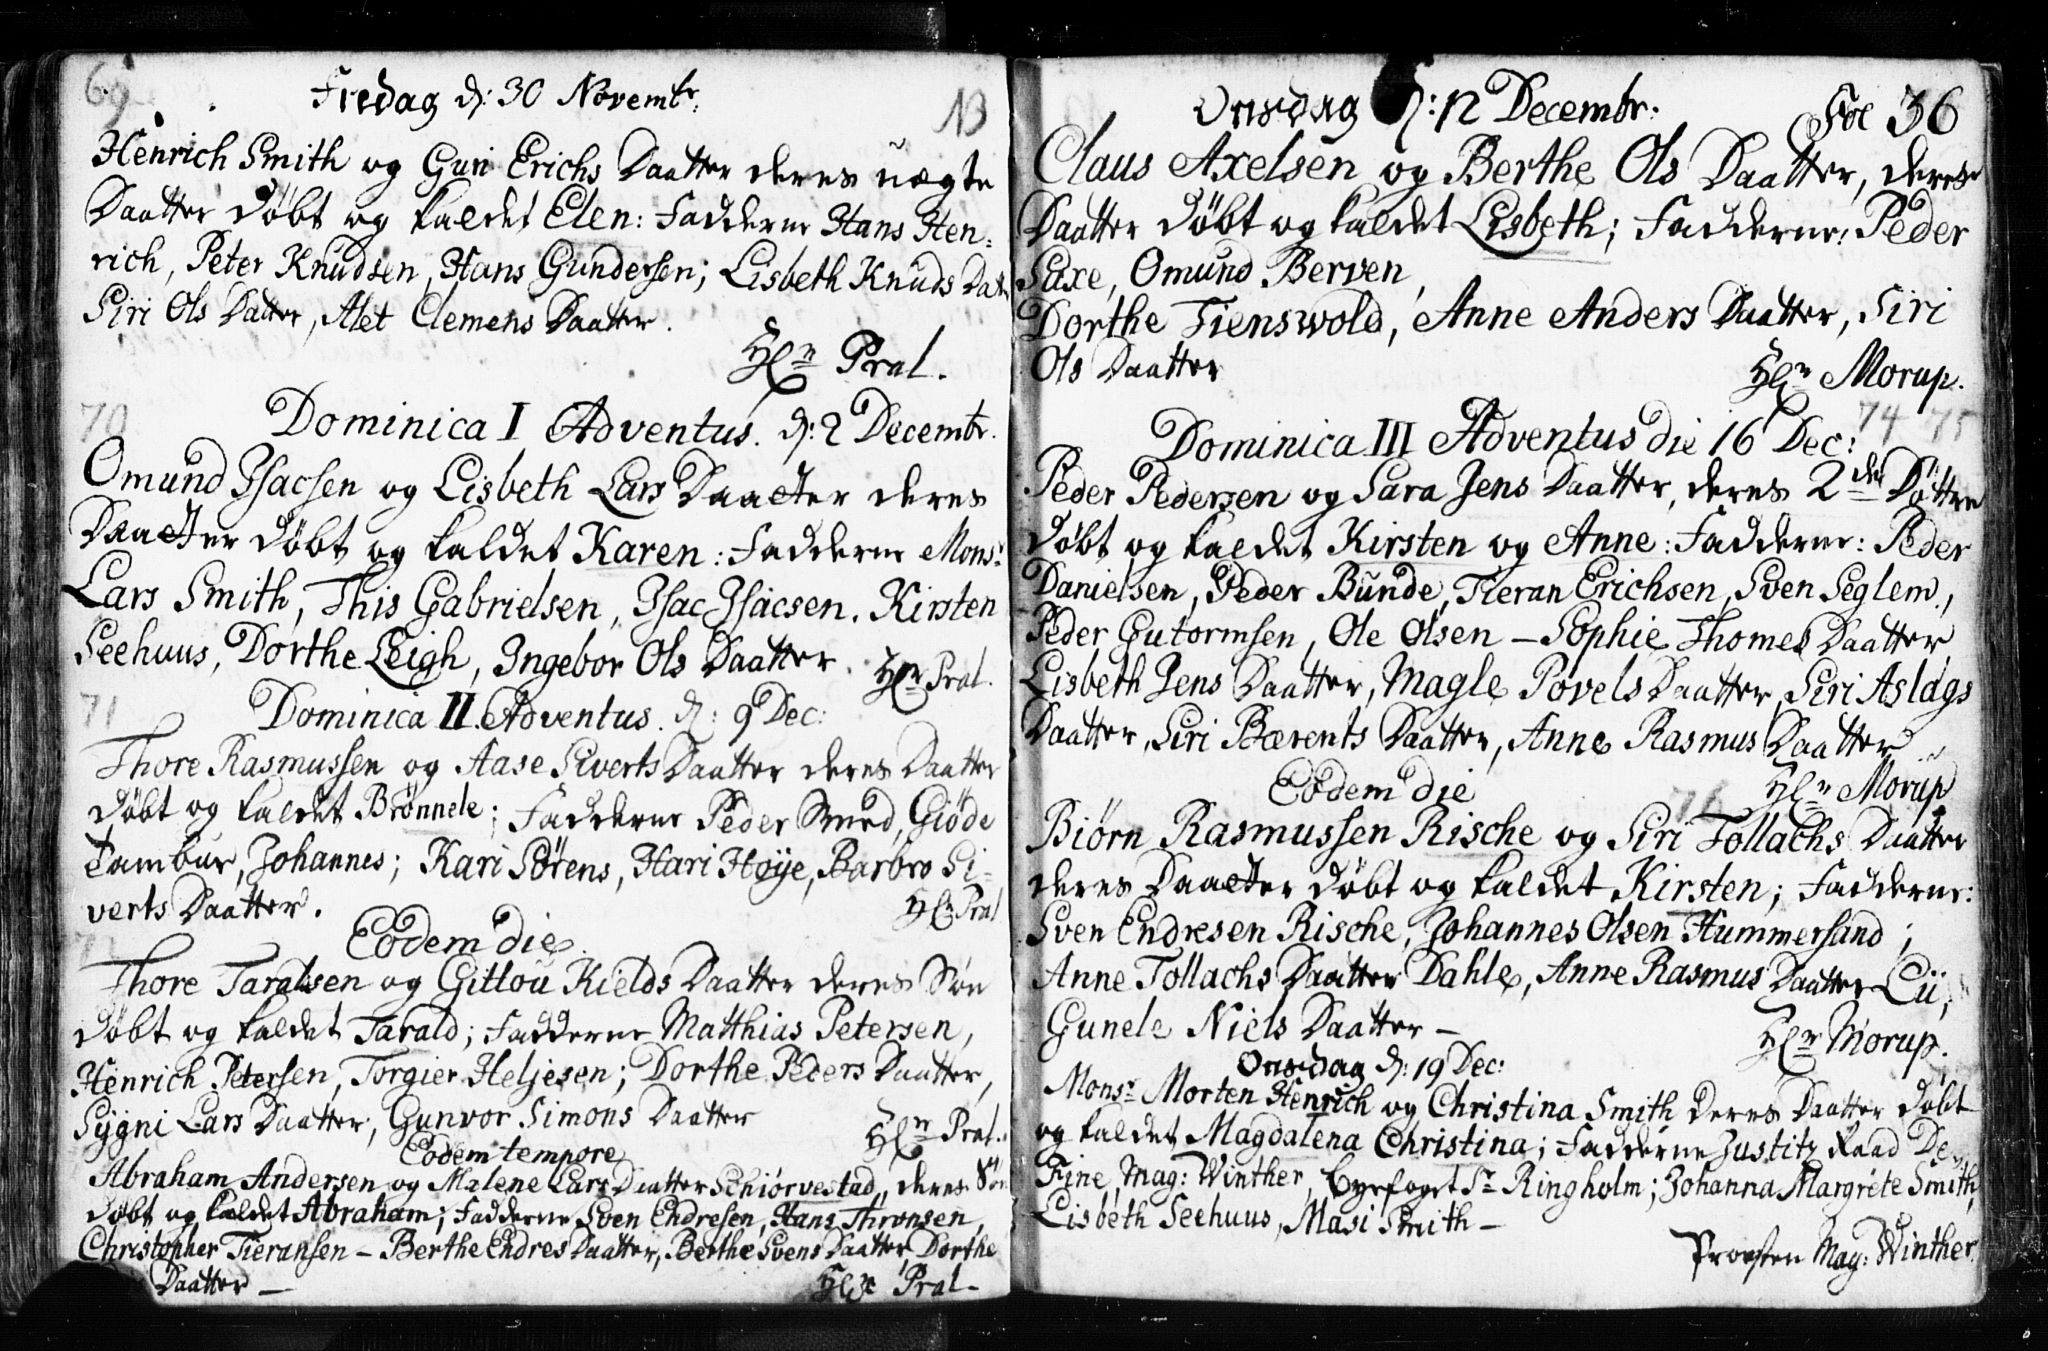 69
Fredag d: 30 Novembr. 13
Henrich Smith og Guri Erichs Daatter deres uægte
Daatter døbt og kaldet Elen: Fadderne Hans Hen:
rich, Peter Knudsen, Hans Gundersen; Lisbeth Knuds Datr
Siri Ols Datter, Alet Clemens Daatter.
Hr Pral.
70
Dominica I Adventus. d: 2 Decembr.
Omund Isacsen og Lisbeth Lars Daatter deres
Daatter døbt og kaldet Karen: Fadderne Monsr
Lars Smith, This Gabrielsen, Isac Isacsen. Kirsten
Seehuus, Dorthe Leigh, Ingebor Ols Daatter. Hr Pral.
71
Dominica II Adventus. d: 9 Dec:
Thore Rasmussen og Aase Siverts Daatter deres Daatter
døbt og kaldet Brønnele; Fadderne Peder Smed, Giøde
Tambur, Johannes; Kari Sørens, Kari Høye, Barbro Si-
verts Daatter. Hr Pral
Eodem die
Thore Taralsen og Gittou Kields Daatter deres Søn
døbt og kaldet Tarald; Fadderne Matthias Petersen,
Henrich Petersen, Torgier Heljesen; Dorthe Peders Daatter,
Sygni Lars Daatter, Gunvor Simons Daatter Hr Pral.
Eodem tempore
Abraham Andersen og Malene Lars Daatter Schiørvestad, deres Søn
døbt og kaldet Abraham; Fadderne Sven Endresen, Hans Thronsen,
Christopher Tieransen - Berthe Endres Daatter, Berthe Svens Daatter, Dorthe
Daatter - Hr Pral -
Onsdag d: 12 Decembr. Fol 36
Claus Axelsen og Berthe Ols Daatter, deres
Daatter døbt og kaldet Lisbeth; Fadderne: Peder
Saxe, Omund Berven,
Dorthe Tienswold, Anne Anders Daatter, Siri
Ols Daatter Hr Morup.
74 75
Dominica III Adventus die 16 Dec:
Peder Pedersen og Sara Jens Daatter, deres 2de Døttre
døbt og kaldet Kirsten og Anne: Fadderne: Peder
Danielsen, Peder Bunde, Tieran Erichsen, Sven Seglem,
Peder Gutormsen, Ole Olsen - Sophie Thomes Daatter
Lisbeth Jens Daatter, Magle Povels Daatter, Siri Aslags
Daatter, Siri Bærents Daatter, Anne Rasmus Daatter
Eodem die 76 Hr Morup
Biørn Rasmussen Rische og Siri Tollachs Daatter
deres Daatter døbt og kaldet Kirsten; Fadderne:
Sven Endresen Rische, Johannes Olsen Hummersand;
Anne Tollachs Daatter Dahle, Anne Rasmus Daatter Lü,
Gunele Niels Daatter - Hr Morup.
Onsdag d: 19 Dec:
Monsr Morten Henrich og Christina Smith deres Daatter døbt
og kaldet Magdalena Christina; Fadderne Justitz Raad De
Fine, Mag: Winther, Byefoget Sr Ringholm; Johanna Margrete Smith,
Lisbeth Seehuus, Masi Smith -
Provsten Mag: Winther.